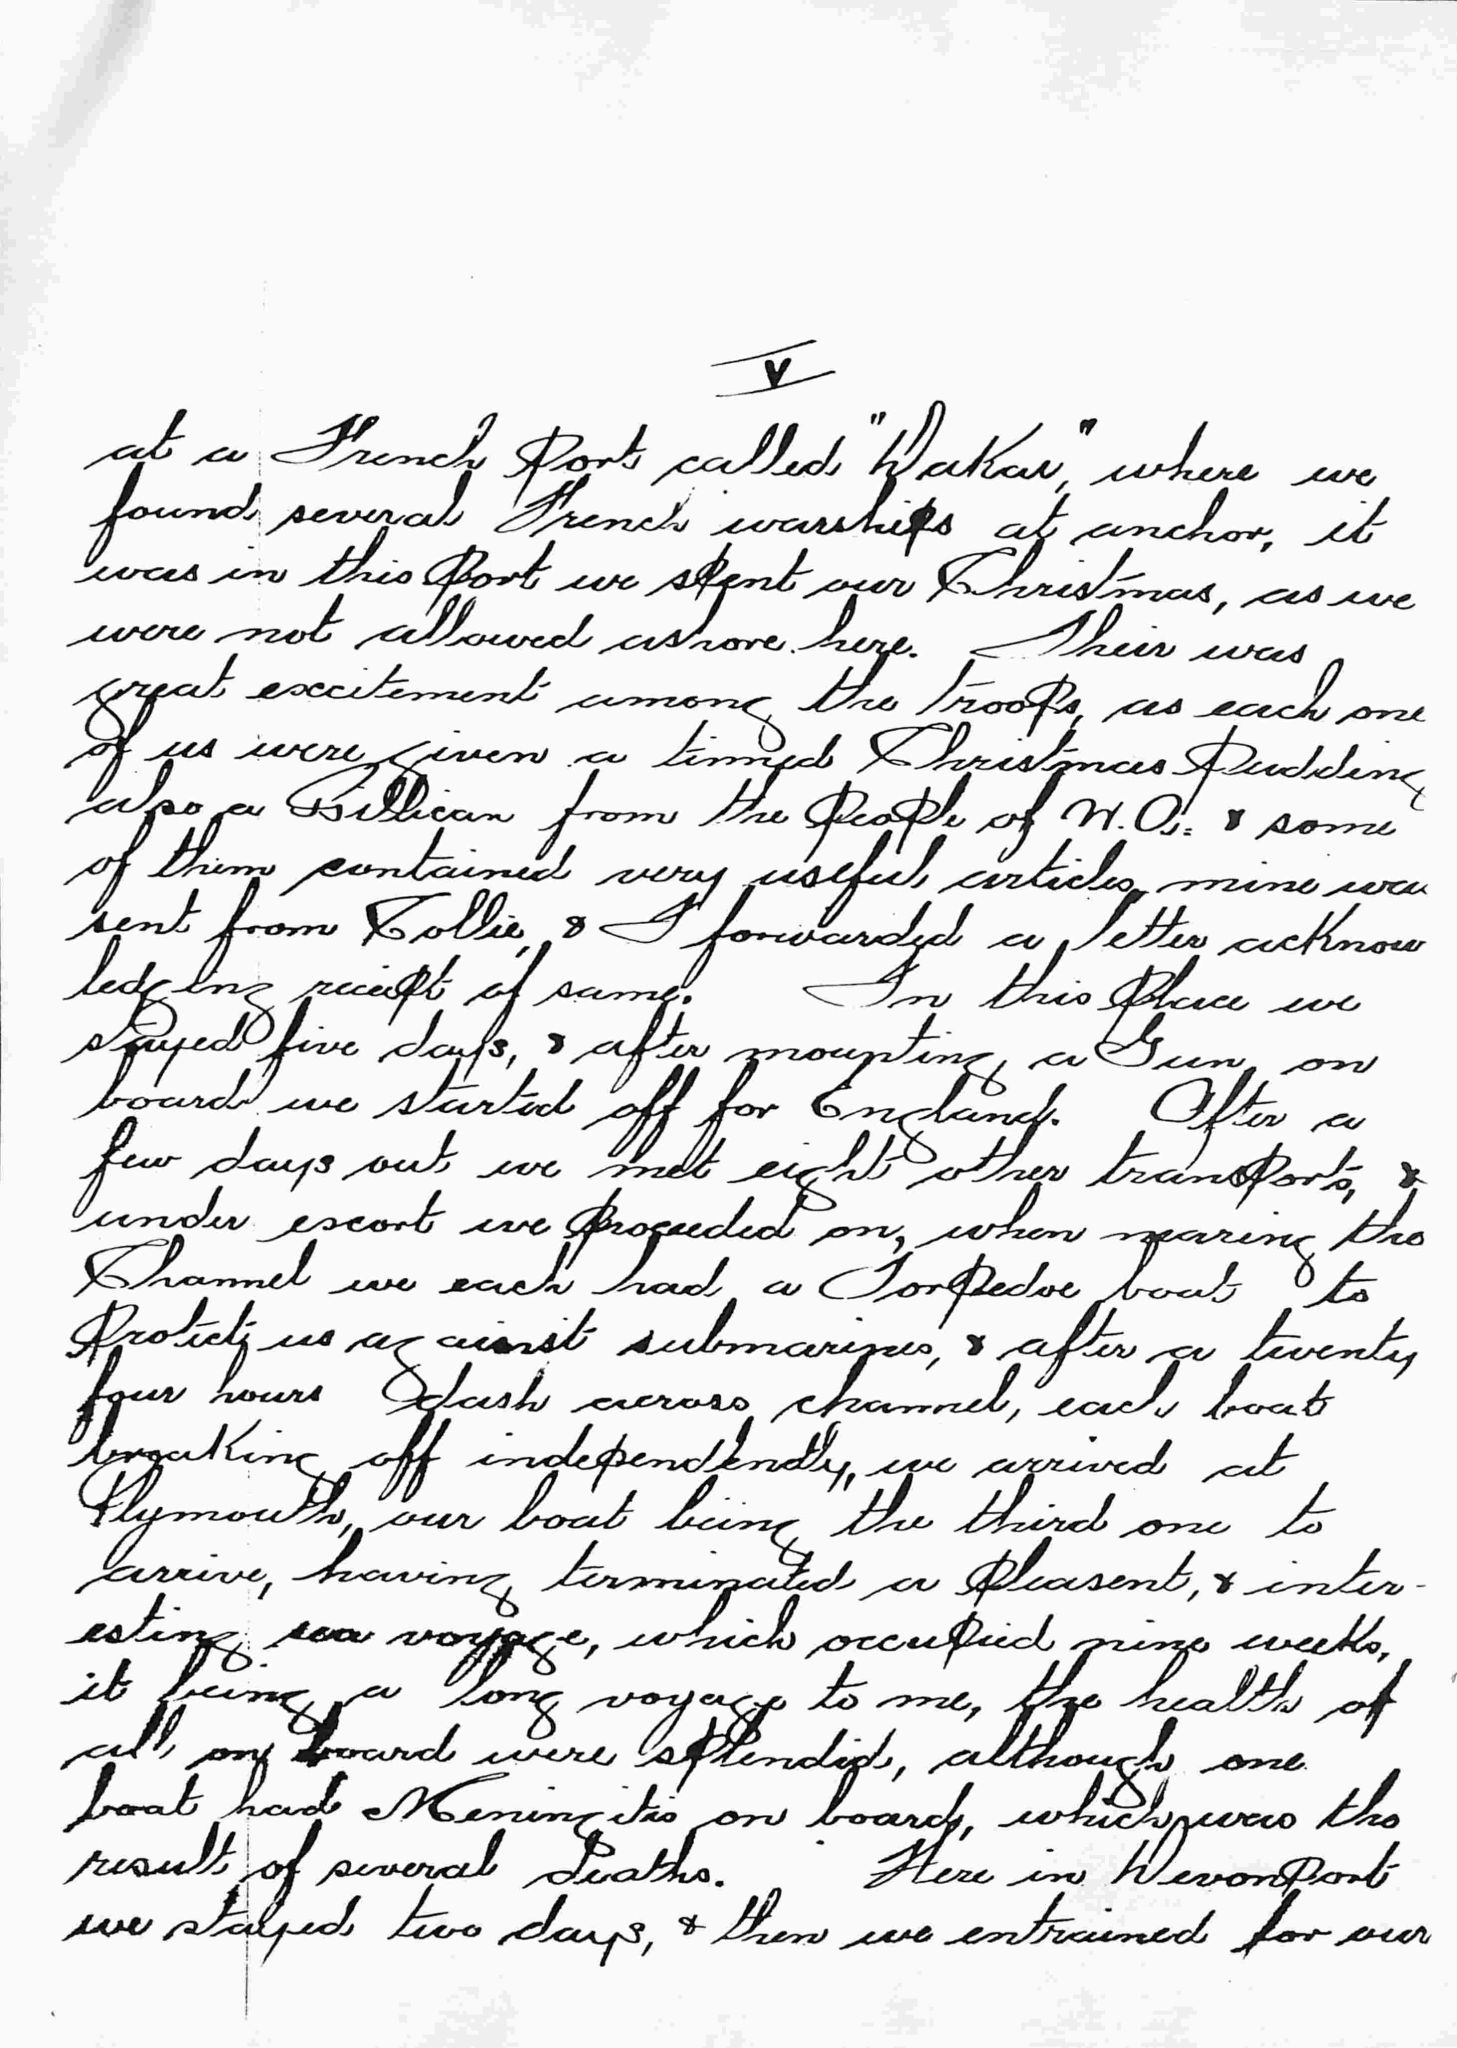 V
at a French Port called "Dakar", where we
found several French warships at anchor, it
was in this Port we spent our Christmas, as we
were not allowed ashore here. Their was
great excitement among the Troops, as each one
of us were given a tinned Christmas Pudding
also a Billican from the People of W.A. & some
of them contained very useful articles, mine was
sent from Collie, & I forwarded a letter acknow
ledging receipt of same. In this Place we
stayed five days, & after mounting a Gun on
board we started off for England. After a
few days out we met eight other transports, &
under escort we Proceeded on, when nearing the
Channel we each had a Torpedoe boat to
Protect us against submarines, & after a twenty
four hours dash across channel, each boat
breaking off independently, we arrived at
Plymouth, our boat being the third one to
arrive, having terminated a Pleasent, & inter-
esting sea voyage, which occupied nine weeks,
it being a long voyage to me, the health of
all on board were splendid, although one
boat had Meningitis on board, which was the
result of several deaths. Here in Devonport
we stayed two days, & then we entrained for our